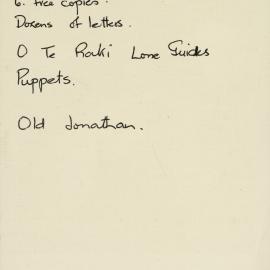 6. free copies.
Dozens of letters.
O Te Raki Lone Guides
Puppets.
Old Jonathan.